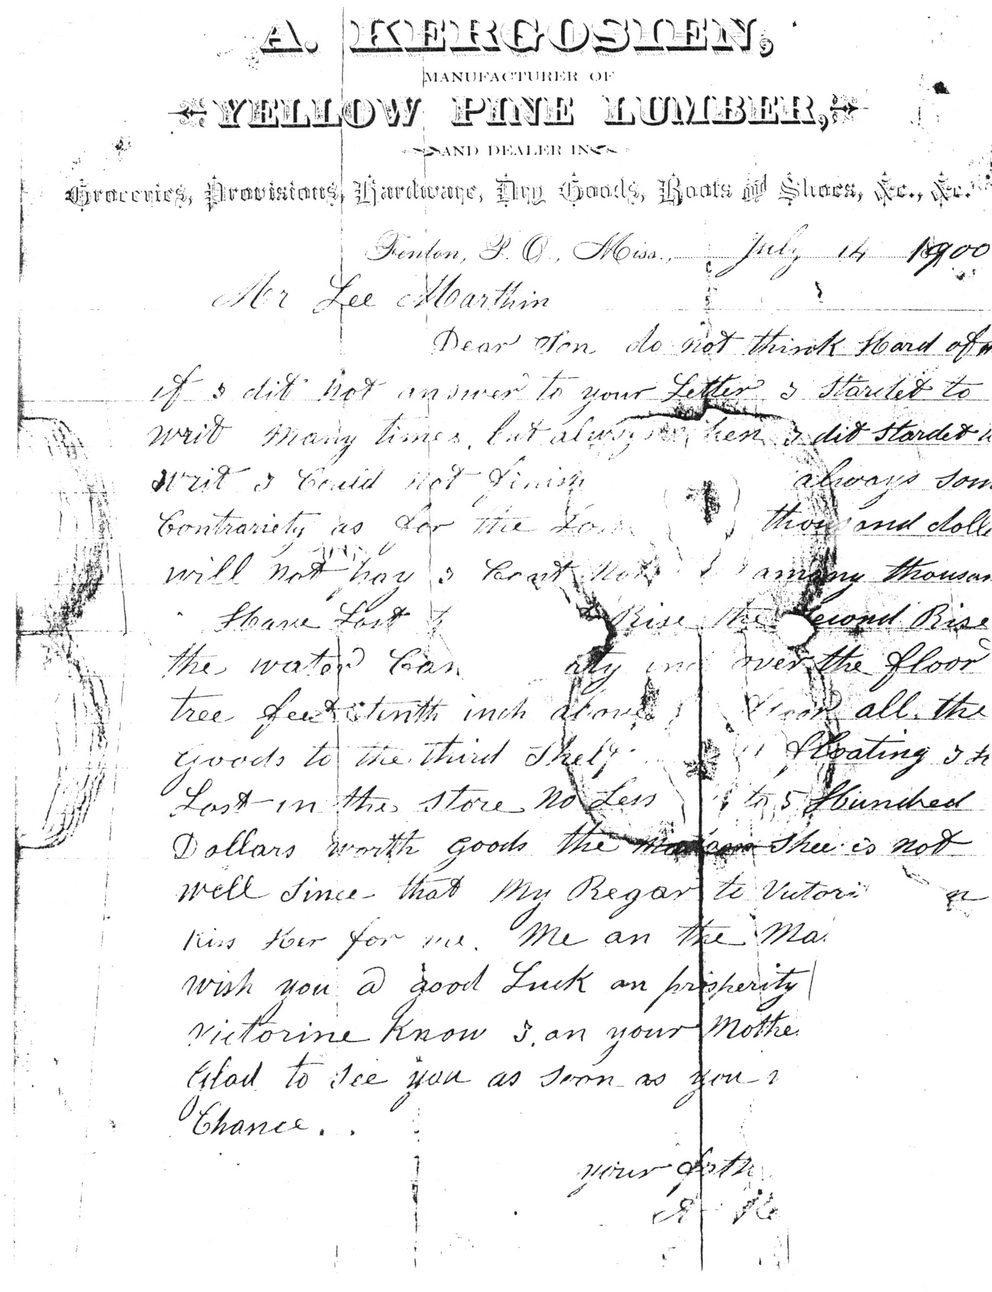 A. KERGOSIEN,
MANUFACTURER OF
YELLOW PINE LUMBER,
AND DEALER IN
Groceries, Provisions, Hardware, Dry Goods, Boots and Shoes, &c., &c.
Fenton, P. O., Miss., July 14 1900
Mr Lee Marthin
Dear Son do not think Hard of
if I dit not answer to your Letter I Stardet to
writ many times, but always when I dit Stardet
writ I Could not finish always som
Contrariety as for the thousand dolla
will not hay I Cant among thousan
Have Lost Rise the Second Rise
the water Can over the floor
tree feet tenth inch above floor all the
goods to the third Shelf floating I
Lost in the store No Less to 5 Hundred
Dollars worth goods the Madam Shee is not
well Since that My Regar to Victori
Kiss Her for me. Me an the Ma
wish you a good Luck an prosperity
victorine Know I an your Mothe
Glad to See you as soon as you
Chance..
your fath
A Ke